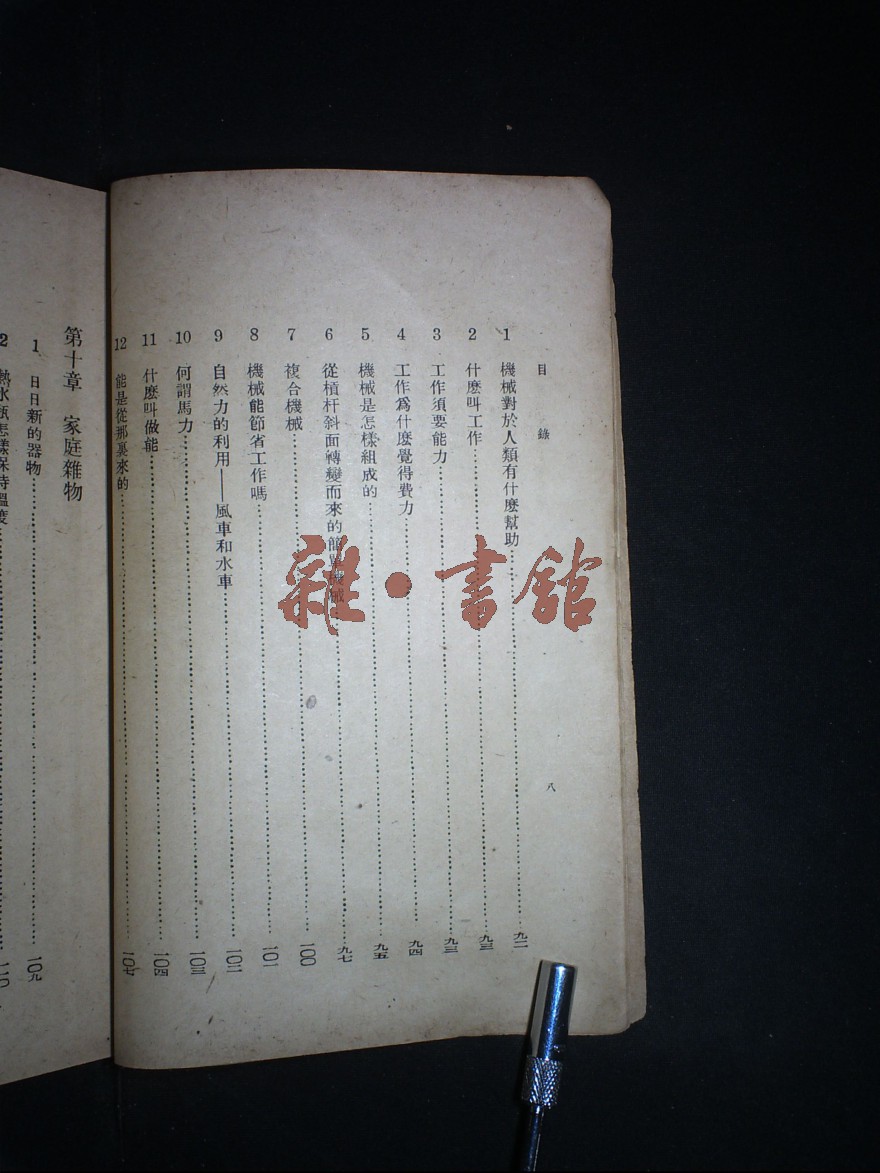 目錄
八
1 機械對於人類有什麼幫助……九二
2 什麼叫工作……九三
3 工作須要能力……九三
4 工作爲什麼覺得費力……九四
5 機械是怎樣組成的……九五
6 從槓杆斜面轉變而來的簡單機械……九七
7 複合機械……一〇〇
8 機械能節省工作嗎……一〇一
9 自然力的利用——風車和水車……一〇二
10 何謂馬力……一〇三
11 什麼叫做能……一〇四
12 能是從那裏來的……一〇七
第十章 家庭雜物
1 日日新的器物……一〇九
2 熱水瓶怎樣保持溫度……一一〇
雜·書館